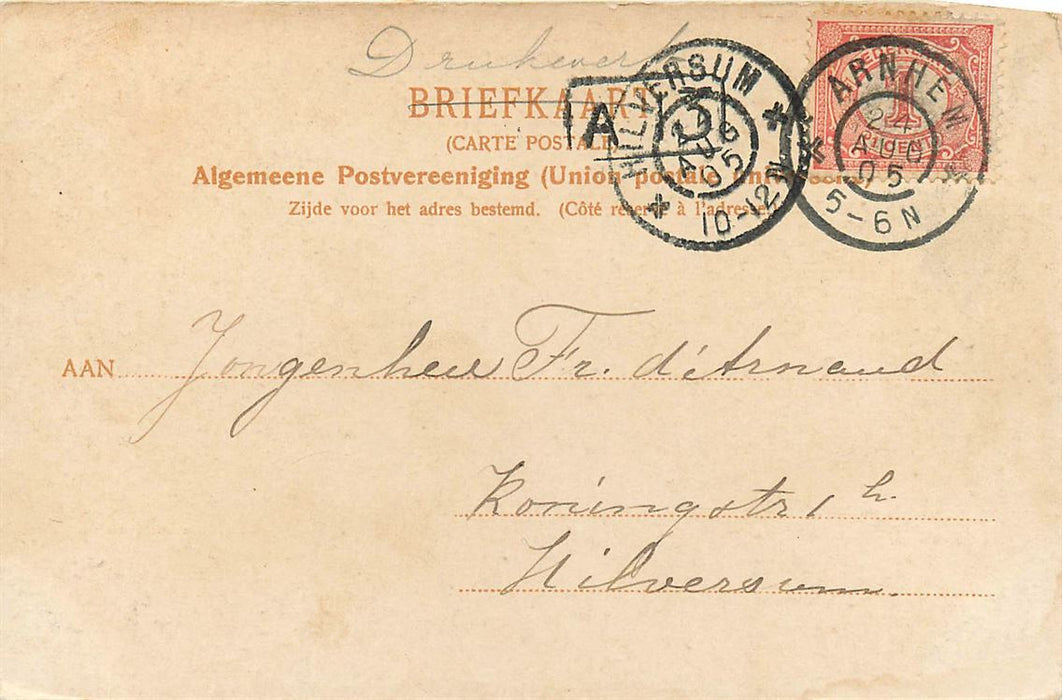 Drukwerk
BRIEFKAART
(CARTE POSTALE)
Algemeene Postvereeniging (Union postale universelle)
Zijde voor het adres bestemd. (Côté réservé à l'adresse)
A 3
HILVERSUM
AUG
05
10-12 N
NEDERLAND
1
CENT
ARNHEM
24
AUG
05
5-6 N
AAN Jongenheer Fr. d'Arnaud
Koningstr 1 h.
Hilversum.